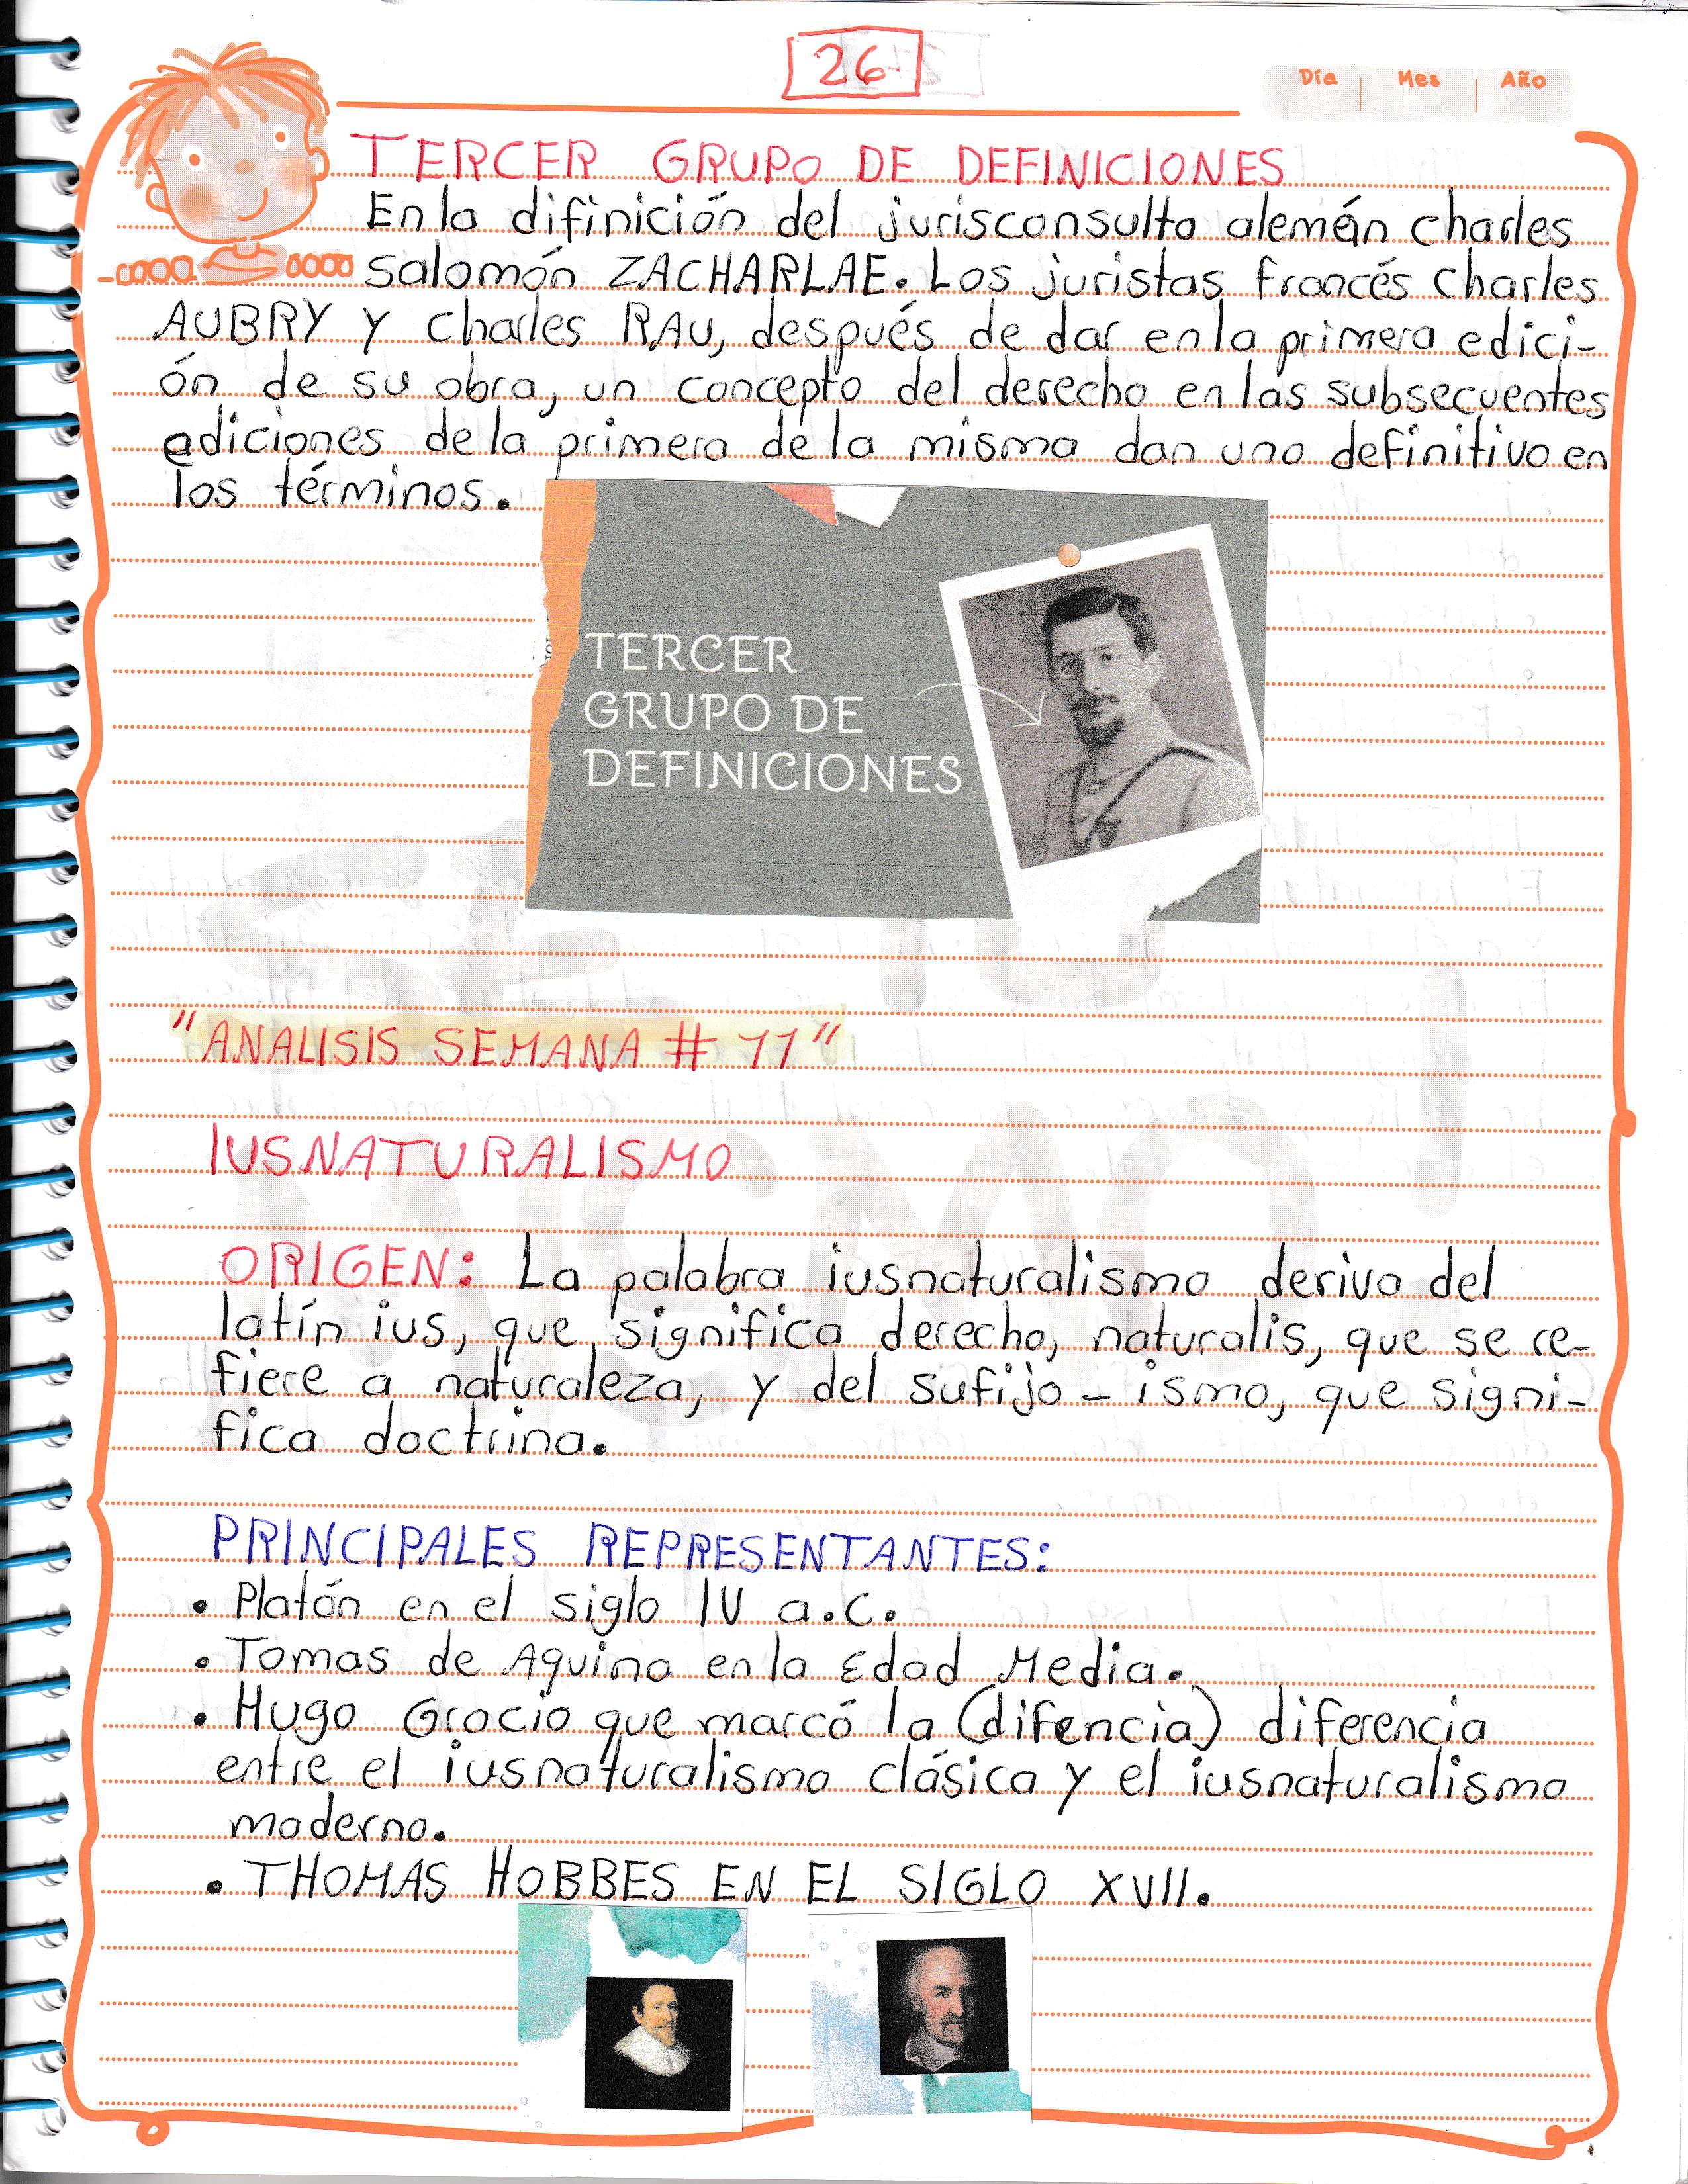 26
Día Mes Año
TERCER GRUPO DE DEFINICIONES
En la difinición del jurisconsulto alemán charles
Salomón ZACHARLAE. Los juristas francés charles
AUBRY Y charles RAU, después de dar en la primera edici-
ón de su obra, un concepto del derecho en las subsecuentes
ediciones de la primera de la misma dan uno definitivo en
los términos.
TERCER
GRUPO DE
DEFINICIONES
"ANALISIS SEMANA # 11"
IUSNATURALISMO
ORIGEN: La palabra iusnaturalismo deriva del
latín ius, que significa derecho, naturalis, que se re-
fiere a naturaleza, y del sufijo - ismo, que signi-
fica doctrina.
PRINCIPALES REPRESENTANTES:
• Platón en el siglo IV a.c.
• Tomas de Aquino en la Edad Media.
• Hugo Grocio que marcó la (difencia) diferencia
entre el iusnaturalismo clásico y el iusnaturalismo
moderno.
• THOMAS HOBBES EN EL SIGLO XVII.